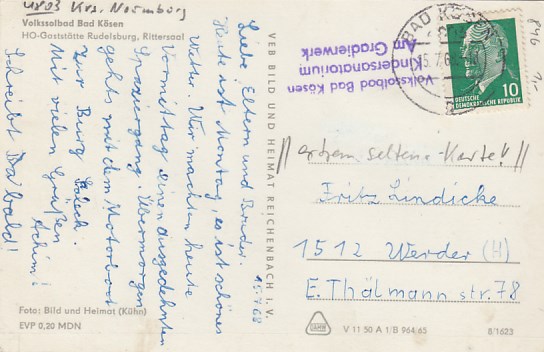 4803 Krs. Naumburg
Volkssolbad Bad Kösen
HO-Gaststätte Rudelsburg, Rittersaal
15.7.68
Liebe Eltern und Bruder.
Heute ist Montag, es ist schönes
Wetter. Wir machen heute
Vormittag einen ausgedehnten
Spaziergang. Übermorgen
gehts mit dem Motorboot
zur Burg Saleck.
Mit vielen Grüßen
Achim!
Schreibt Bald!
Foto: Bild und Heimat (Kühn)
EVP 0,20 MDN
VEB BILD UND HEIMAT REICHENBACH I. V.
Volkssolbad Bad Kösen
Kindersanatorium
Am Gradierwerk
BAD KÖSEN
15.7.68
DEUTSCHE
DEMOKRATISCHE REPUBLIK
10
846
// extrem seltene Karte!! //
Fritz Lindicke
1512 Werder (H)
E. Thälmann str. 78
V 11 50 A 1/B 964/65
8/1623